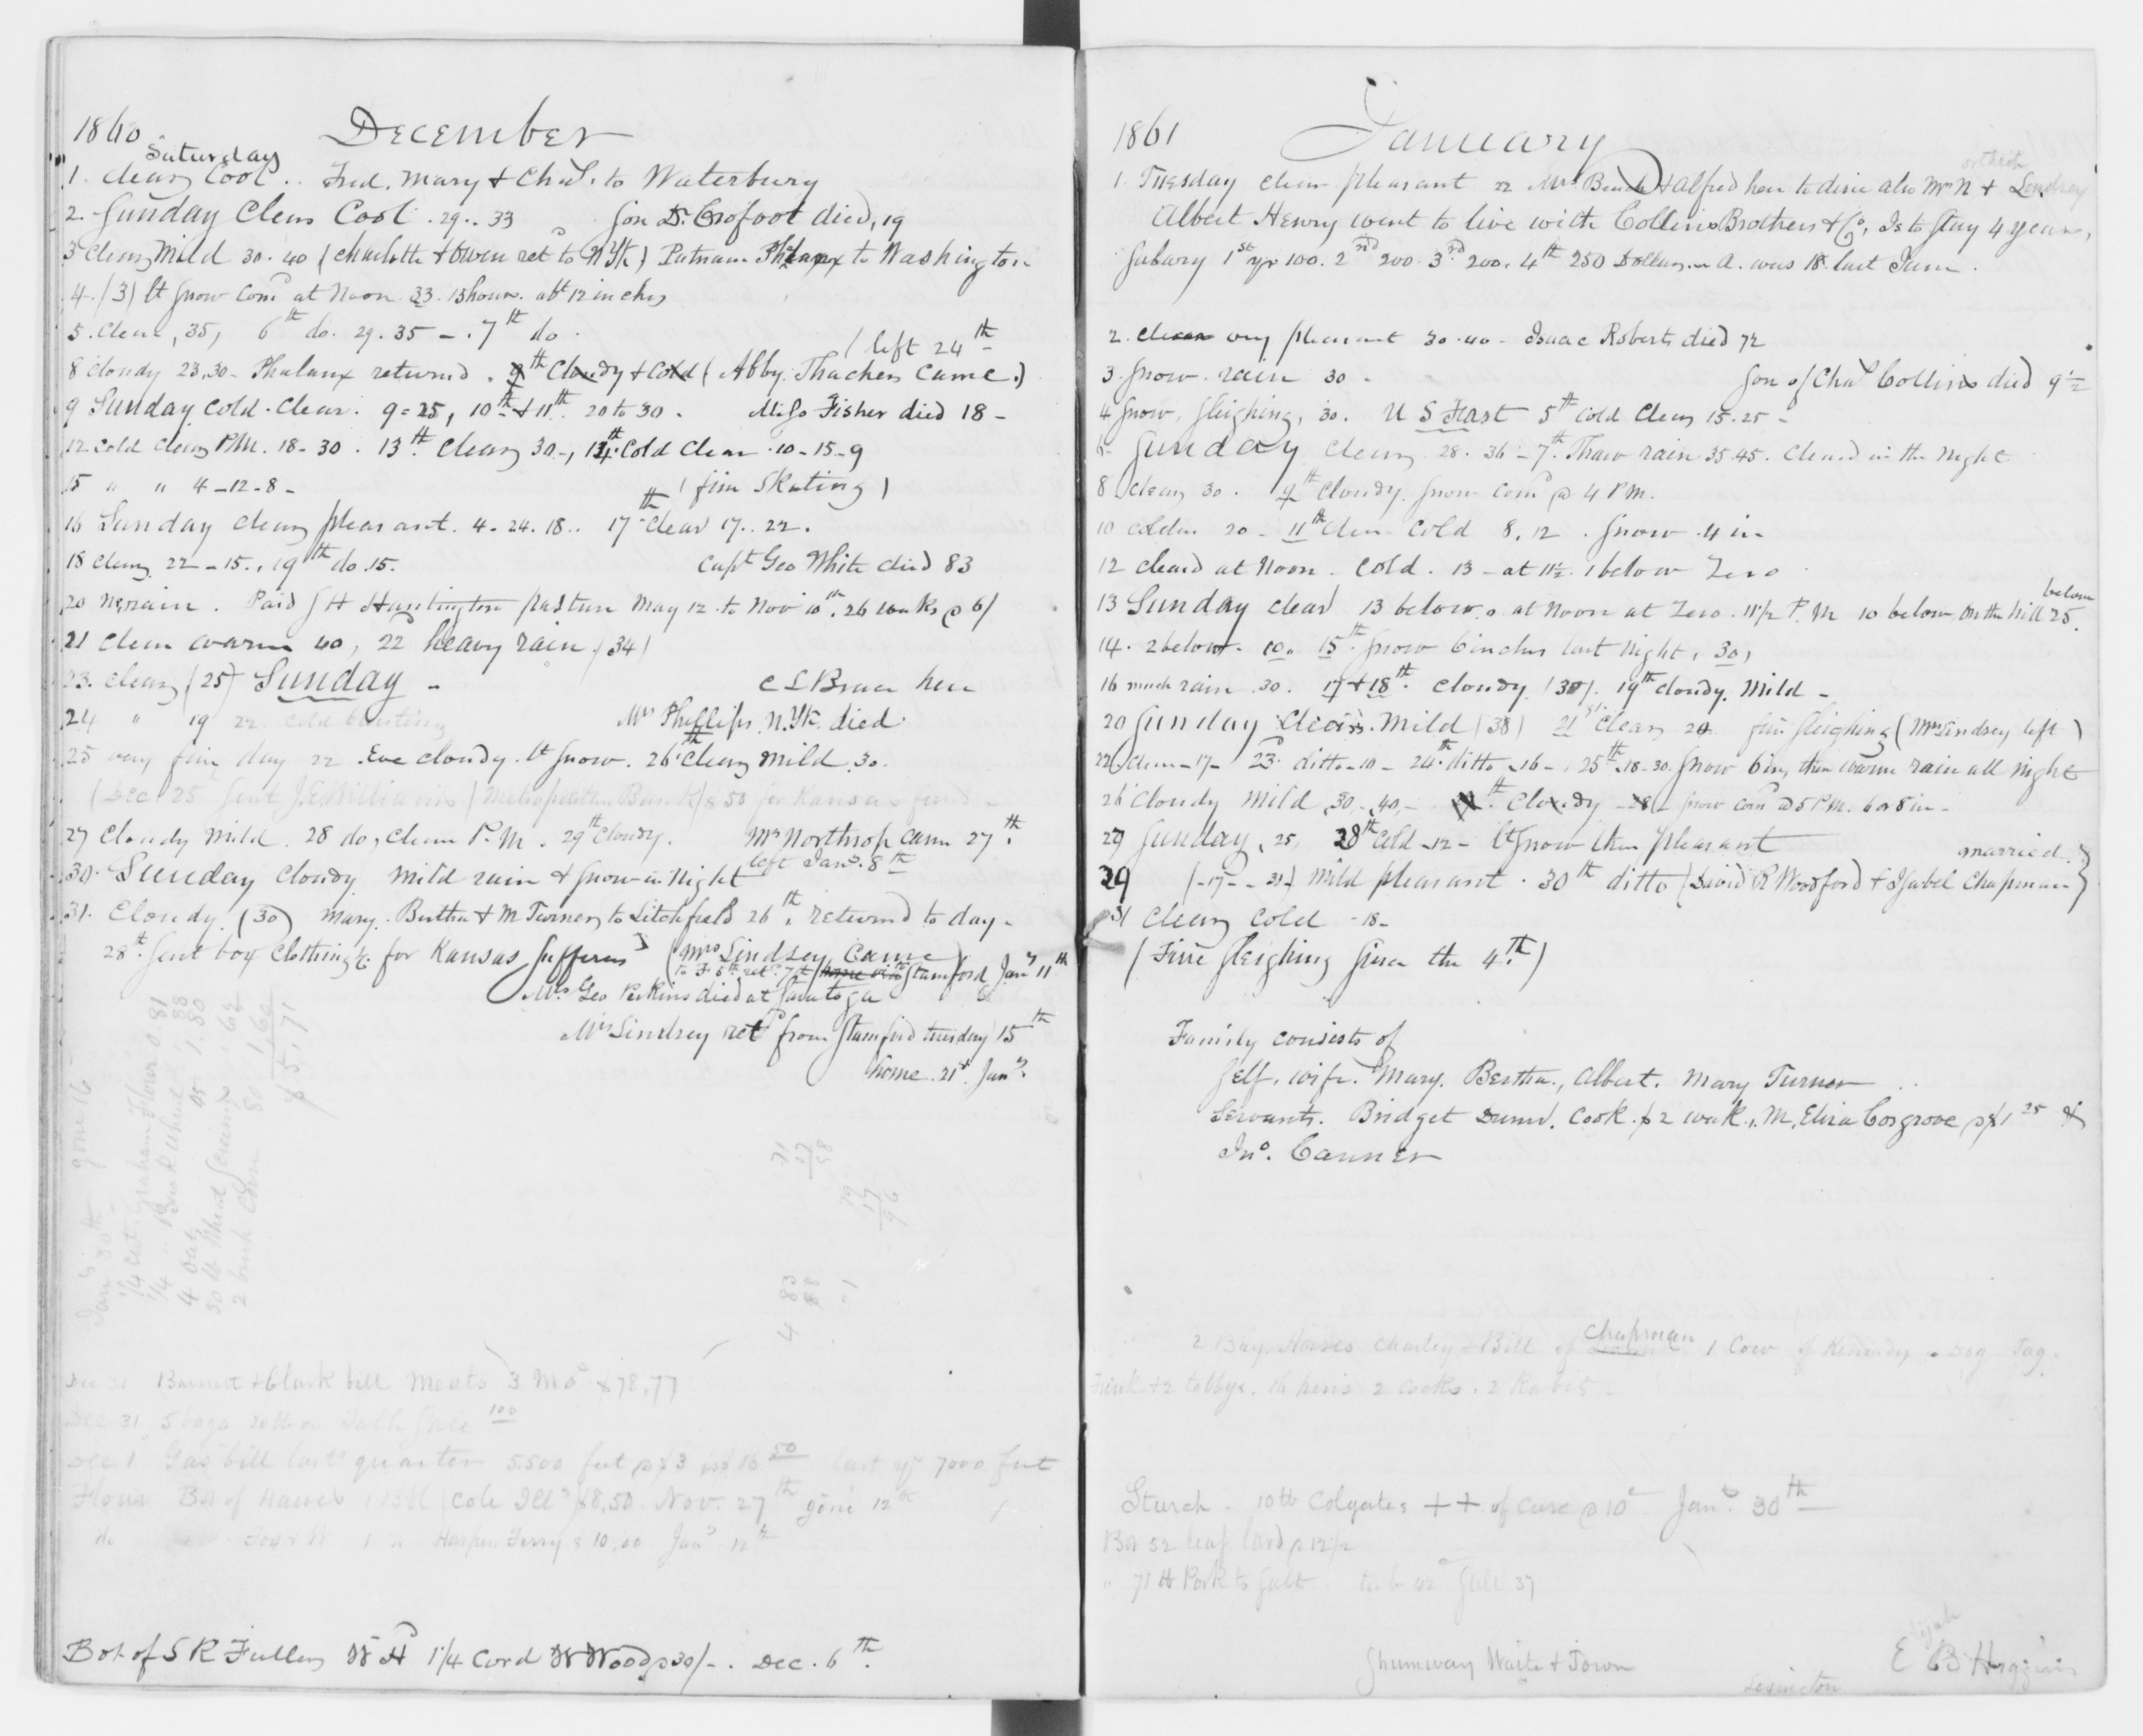 1860 December
Saturday
1. Clear Cool .. Fred. Mary & Chas. to Waterbury
2. Sunday Clear Cool . 29 .. 33 Son Dr. Crofoot died, 19
3 Clear, Mild 30. 40 (Charlotte & Owen retd to N Yk) Putnam Phalanx to Washington
4. (31) lt Snow comd at Noon 33. 13 hours. abt 12 inches
5. Clear, 35, 6th do. 29. 35 - . 7th do.
(left 24th
8 Cloudy 23.30 - Phalanx returned . Cloudy & Cold (Abby Thacher came.)
9 Sunday Cold. Clear. 9 = 25, 10th & 11th 20 to 30 . Miss Fisher died 18 -
12 Cold Clear, P.M. 18 - 30 . 13th Clear, 30 -, 14th Cold Clear . 10 - 15 - 9
15 " " 4 - 12 - 8 - (fine Skating)
16 Sunday clear, pleasant. 4 - 24. 18 .. 17th Clear 17 .. 22.
18 Clear, 22 - 15 . , 19th do. 15. Capt Geo White died 83
20 rain . Paid S H Huntington pasture May 12 to Nov 10th. 26 weeks @ 6/
21 Clear warm 40, 22 heavy rain (34)
23. Clear, (25) Sunday - C L Brace here
24 " 19 22 cold blusting Mrs Phillips N.Yk. died
25 very fine day 22 . Eve cloudy. lt Snow. 26th Clear, Mild 30.
(Dec. 25 Sent J. E Williams (Metropolitan Bank) $50 for Kansas fund -
27 Cloudy Mild. 28 do, Clear P.M. 29th Cloudy. Mr Northrop came 27th.
left Jany. 8th
30. Sunday Cloudy Mild rain & Snow in Night
31. Cloudy (30) Mary. Bertha & M Turner, to Litchfield 26th. returned to day -
28th. Sent box Clothing &c. for Kansas Sufferers (Mrs Lindsey came
Stamford Jany 11th
Mrs Geo Perkins died at Saratoga
Mrs Lindsey retd from Stamford tuesday 15th
home. 21st Jany.
Jany 30th gone 16
1/4 cct. Graham Flour 0.81
1/4 .. Buckwheat 88
4 Oats 45 1.80
50 lb Wheat Screenings 62
2 bush Corn 80 1.60
$5.71
71
17
58
79
17
96
4 83
Dec 31 Burnett & Clark bill Meats 3 Mos $78,77
Dec 31 5 bags 20 lb Table Salt 100
Dec 1 Gas bill last quarter 5.500 feet @ $3 16 50 last yr 7000 feet
Flour Bot of 1 Bbl (Cole Ills $8,50 Nov. 27th gone 12th
do 1 " Harpers Ferry $10.00 Jany 12th
Bot of S R Fuller, 1 1/4 Cord W Wood @ 30/- . Dec. 6th.
1861 January
1. Tuesday clear pleasant 22 Mrs Beach & Alfred here to dine also Mr N & Lindsey
Albert Henry went to live with Collins Brothers & Co, Is to Stay 4 years,
Salary 1st yr 100. 2nd 200. 3rd 200. 4th 250 Dollars. A. was 18 last June.
2. Clear very pleasant 30.40 - Isaac Roberts died 72
3. Snow. rain 30 . Son of Chas Collins died 9 1/2
4 Snow, Sleighing, 30. U S Fast 5th Cold Clear, 15.25 -
6- Sunday Clear, 28. 36 - 7th. Thaw rain 35.45. Cleared in the Night
8. Clear, 30 . 9th Cloudy. Snow comd @ 4 P.M.
10 colder 20 - 11th Clear Cold 8, 12 . Snow 4 in
12 Cleard at Noon. Cold. 13 - at 11 1/2. 1 below Zero
13 Sunday Clear 13 below. at Noon at Zero. 11 1/2 P.M 10 below, On the hill 25. below
14. 2 below - 10. 15th Snow 6 inches last Night, 30,
16 much rain 30. 17 & 18th. Cloudy (30). 19th cloudy. Mild -
20 Sunday Clear. Mild (38) 21st Clear, 20 fine Sleighing (Mrs Lindsey left)
22 Clear - 17 - 23d. ditto - 10 - 24th ditto - 16 - , 25th - 18 - 30. Snow 6 in, then warm rain all night
26 Cloudy Mild 30 - 40 - Cloudy - 28 - Snow comd @ 5 P.M. 6 or 8 in -
27 Sunday, 25, 28th Cold - 12 - lt Snow then pleasant
married
29 (-17 - - 31) Mild pleasant . 30th ditto (David R Woodford & Isabel Chapman)
31 Clear, Cold - 18 -
(Fine Sleighing Since the 4th.)
Family consists of
Self. wife. Mary. Bertha., Albert. Mary Turner
Servants. Bridget Dunn. Cook $2 week., M. Eliza Cosgrove @ $1 25 &
Jno. Canner
2 Bay Horses Charley & Bill of Chapman 1 Cow of Kennedy . Dog - Tag.
2 tabbys. 16 hens 2 Cocks. 2 Rabits -
Starch - 10 lb Colgates ++ of Case @ 10c Jany. 30th
Bot 52 leaf lard @ 12 1/2
" 71 lb Pork to Salt
Shumway Waite & Town
Lexington
Elijah
E B Higgins